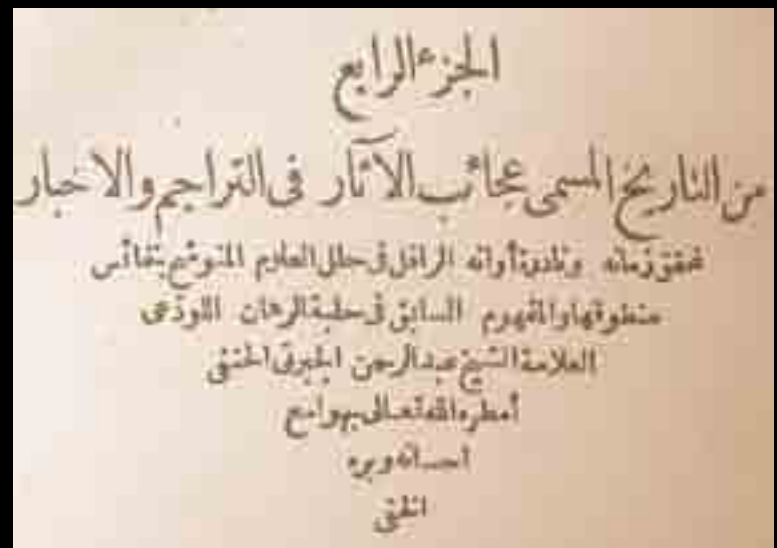 الجزء الرابع
من التاريخ المسمى عجائب الآثار فى التراجم والاخبار
لمحقق زمانه ونادرة أوانه الرافل فى حلل العلوم المتوشح بنفائس
منطوقها والمفهوم السابق فى حلبة الرهان اللوذعى
العلامة الشيخ عبد الرحمن الجبرتى الحنفى
أمطره الله تعالى بهوامع
احسانه وبره